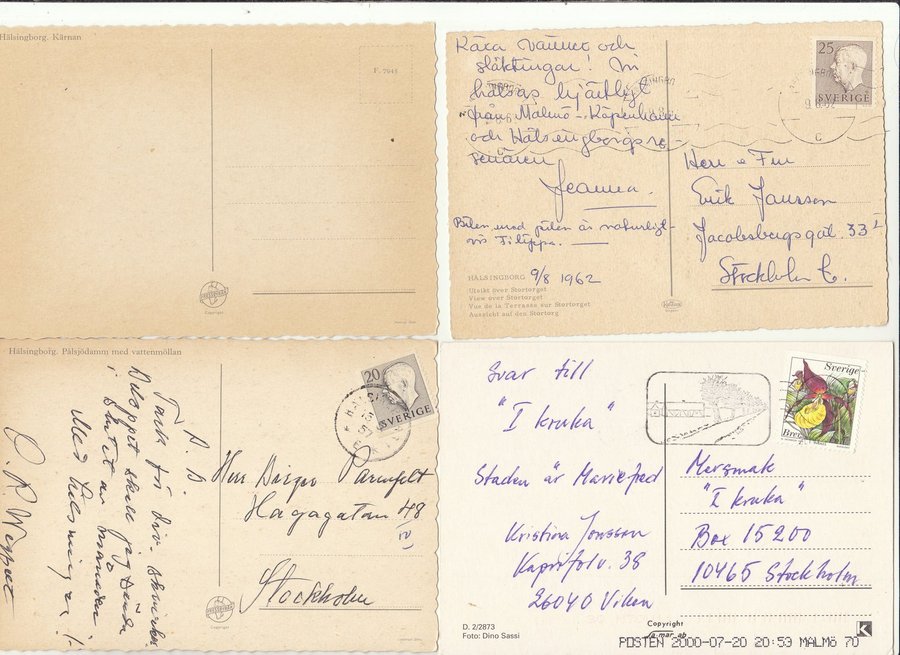 Hälsingborg. Kärnan
F. 7945
Copyright
Kära vänner och
släktingar! Vi
hälsas hjärtligt
från Malmö-Köpenhamn
och Hälsingborgsre-
senären
Jeanna.
Bilen med pilen är naturligt-
vis Filippa.
HÄLSINGBORG 9/8 1962
Utsikt över Stortorget
View over Stortorget
Vue de la Terrasse sur Stortorget
Aussicht auf den Stortorg
25
SVERIGE
C
Herr o Fru
Erik Jansson
Jacobsbergsgat. 33 I
Stockholm C.
Hälsingborg. Pålsjödamm med vattenmöllan
Tack för div. skrivelser.
Avloppet skall jag sända
i slutet av månaden
Med hälsningar!
20
SVERIGE
Herr Dirgen
Hagagatan 48
Stockholm
Copyright
Svar till
"I kruka"
Staden är Mariefred
Kristina Jonsson
Kaprifolv. 38
26040 Viken
D. 2/2873
Foto: Dino Sassi
Sverige
Brev
Mersmak
"I kruka"
Box 15200
10465 Stockholm
Copyright
POSTEN 2000-07-20 20:53 MALMÖ 70
K